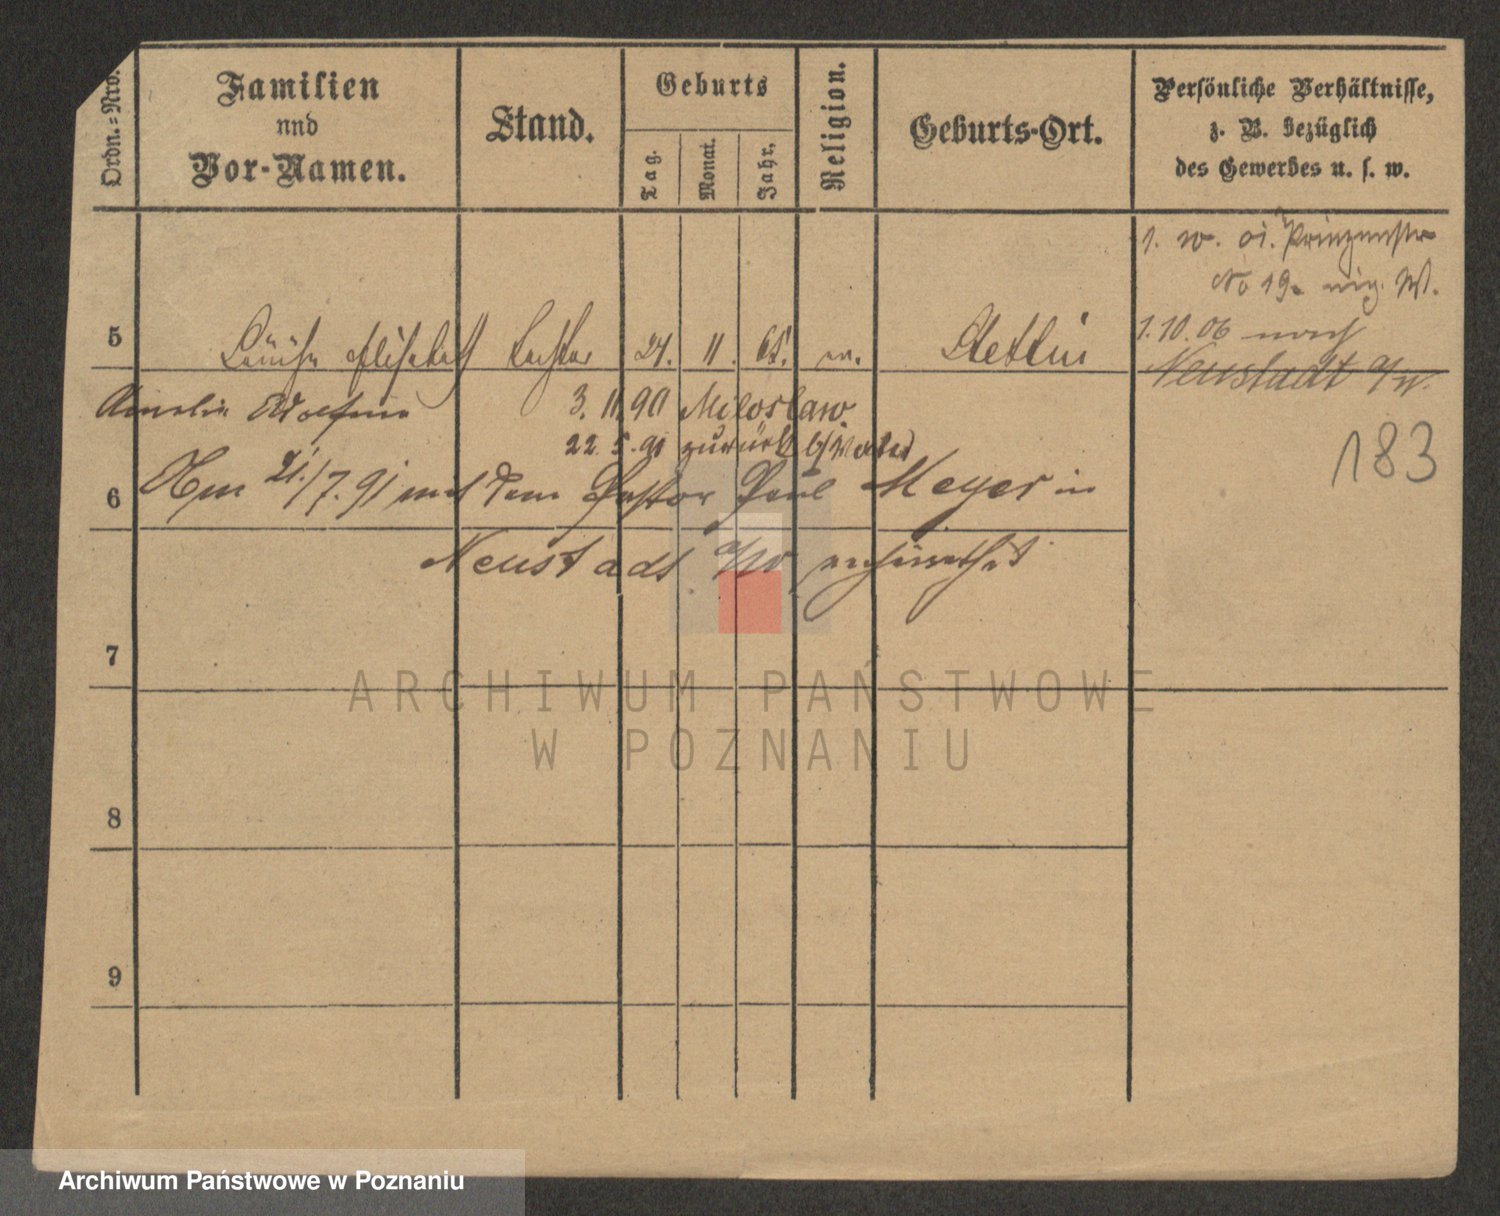 Ordn.-Nro.
Familien
und
Vor-Namen.
Stand.
Geburts
Tag.
Monat.
Jahr.
Religion.
Geburts-Ort.
Persönliche Verhältnisse,
z. B. bezüglich
des Gewerbes u. s. w.
1. 10. 01. Prinzenstr
No 19. W.
5 Louise Elisabeth Tochter 24. 11. 65. ev. Stettin
1.10.06 nach
Neustadt a/W.
Amalie 3. 11. 90 Miloslaw.
22. 5. 91 zurück
183
6 Am 21./7. 91 mit dem Pastor Paul Meyer in
Neustadt a/W verheirathet
7
8
9
ARCHIWUM PAŃSTWOWE
W POZNANIU
Archiwum Państwowe w Poznaniu